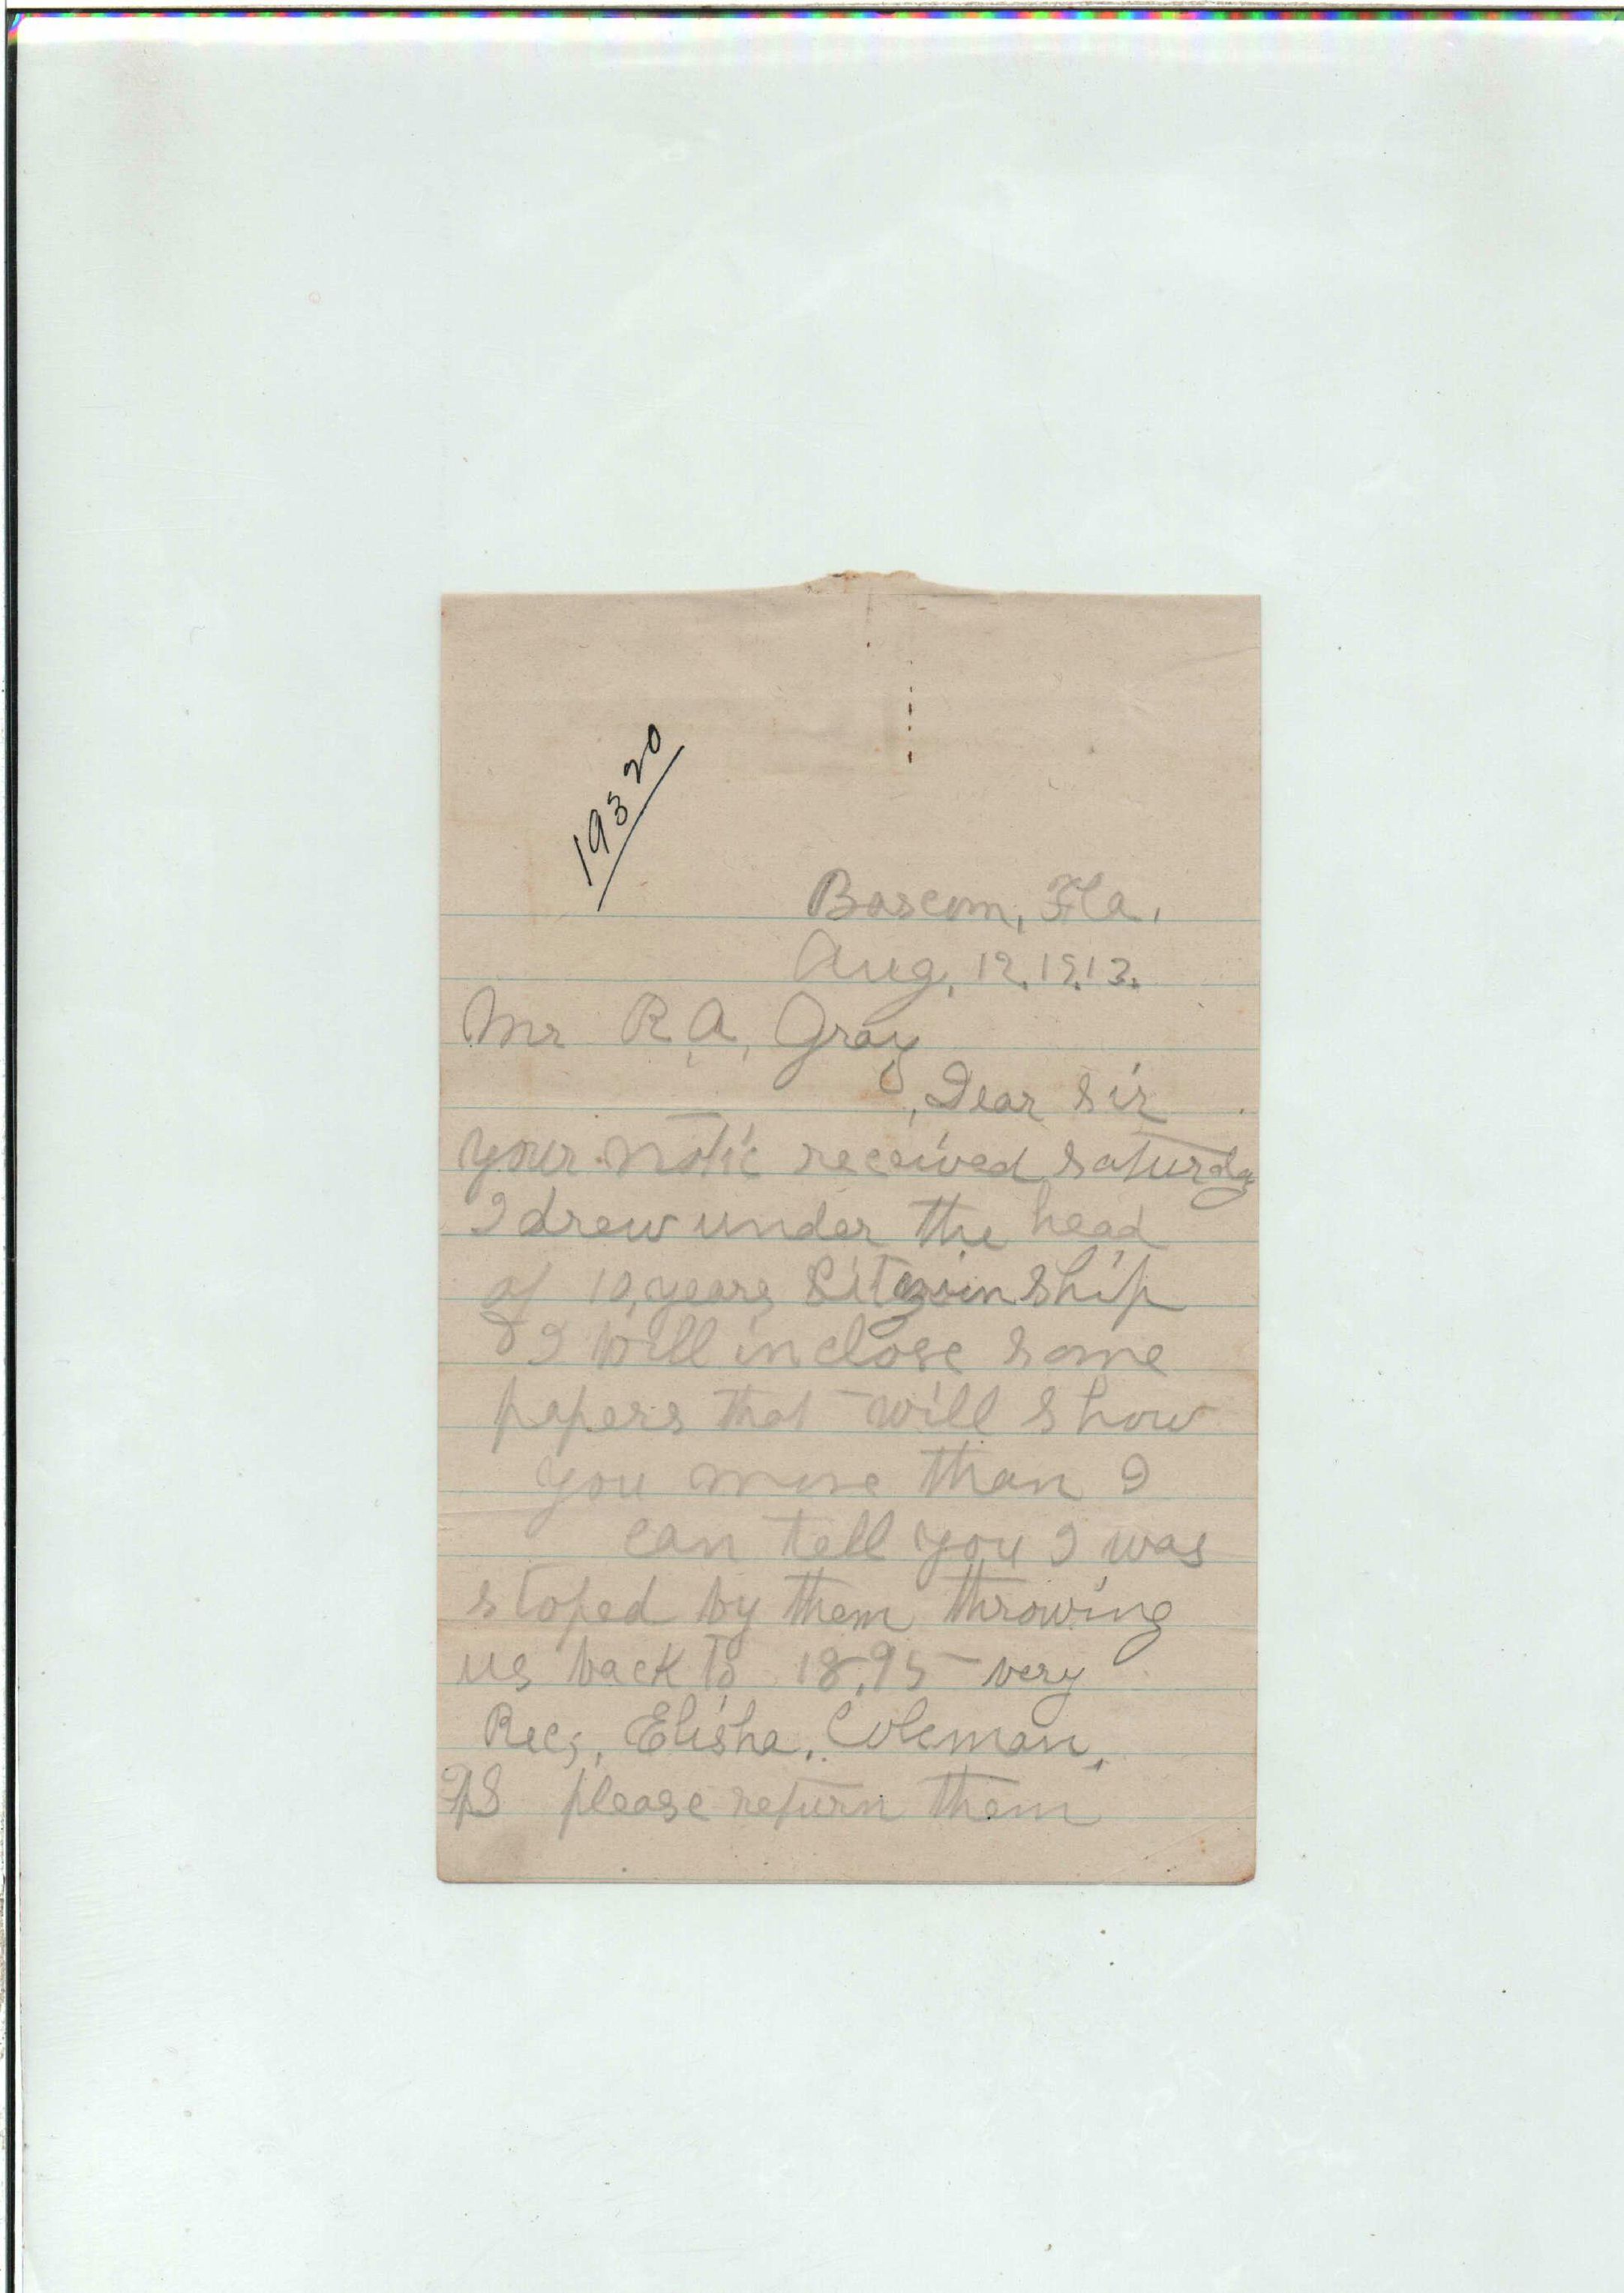 19320
Bascom, Fla.
Aug, 12. 1913.
Mr R. A, Gray
Dear Sir
your notic received saturday
I drew under the head
of 10, years Sitizoinship
& I will inclose some
papers that will show
you more than I
can tell you I was
stoped by them throwing
us back to 18.95 very
Rec;, Elisha, Coleman,
PS please return them